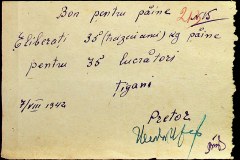 Bon pentru pâine
Eliberați 35 (treizecișicinci) kg pâine
pentru 35 lucrători
Țigani
7/VIII 1942
Pretor